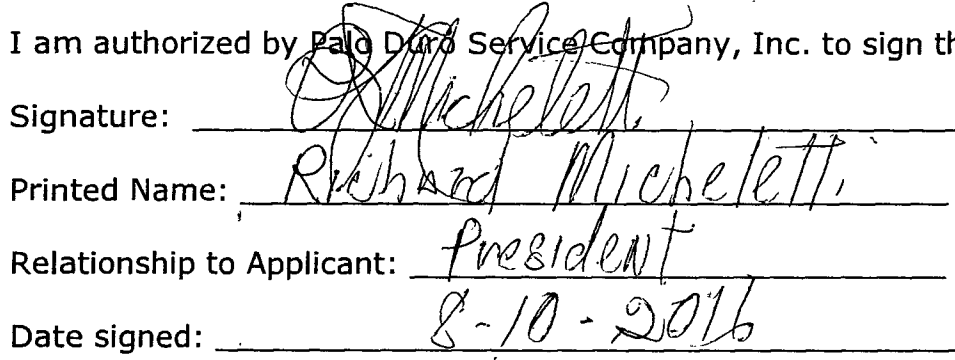 I am authorized by Palo Duro Service Company, Inc. to sign th
Signature: R Micheletti
Printed Name: Richard Micheletti
Relationship to Applicant: President
Date signed: 8-10-2016